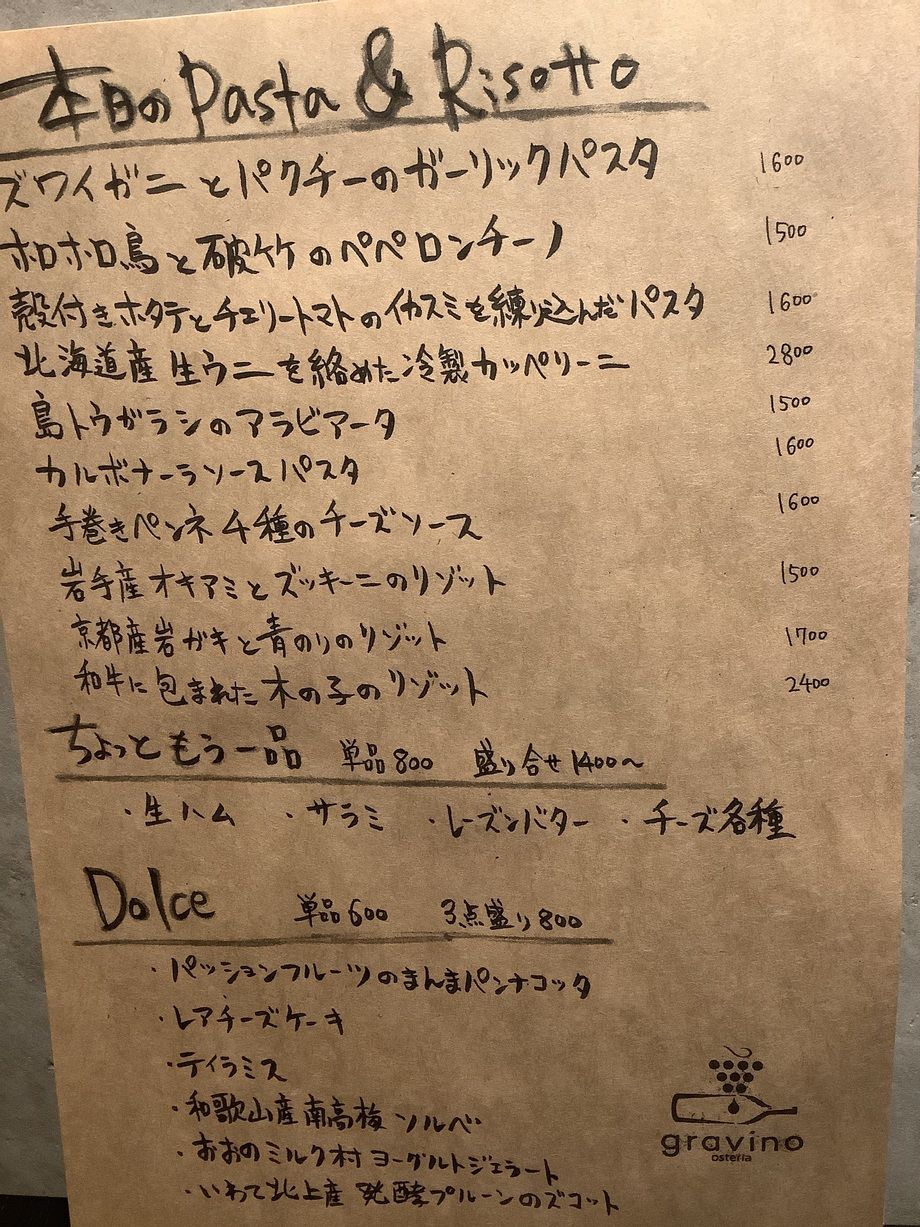 本日の Pasta & Risotto
ズワイガニとパクチーのガーリックパスタ 1600
ホロホロ鳥と破竹のペペロンチーノ 1500
殻付きホタテとチェリートマトのイカスミを練り込んだパスタ 1600
北海道産生ウニを絡めた冷製カッペリーニ 2800
島トウガラシのアラビアータ 1500
カルボナーラソースパスタ 1600
手巻きペンネ 4種のチーズソース 1600
岩手産オキアミとズッキーニのリゾット 1500
京都産岩ガキと青のりのリゾット 1700
和牛に包まれた木の子のリゾット 2400
ちょっともう一品 単品800 盛り合せ1400〜
・生ハム ・サラミ ・レーズンバター ・チーズ各種
Dolce 単品600 3点盛り800
・パッションフルーツのまんまパンナコッタ
・レアチーズケーキ
・ティラミス
・和歌山産南高梅ソルベ
・おおのミルク村 ヨーグルトジェラート
・いわて北上産 発酵プルーンのズコット
gravino
osteria